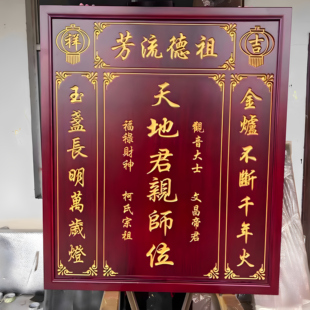 祖德流芳
吉
祥
金爐不斷千年火
觀音大士 文昌帝君
天地君親師位
福祿財神 柯氏宗祖
玉盞長明萬歲燈